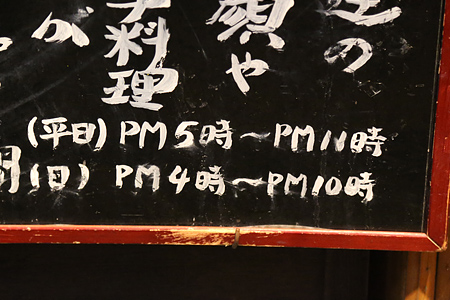 の
や
料理
が
(平日) PM5時～PM11時
(日) PM4時～PM10時